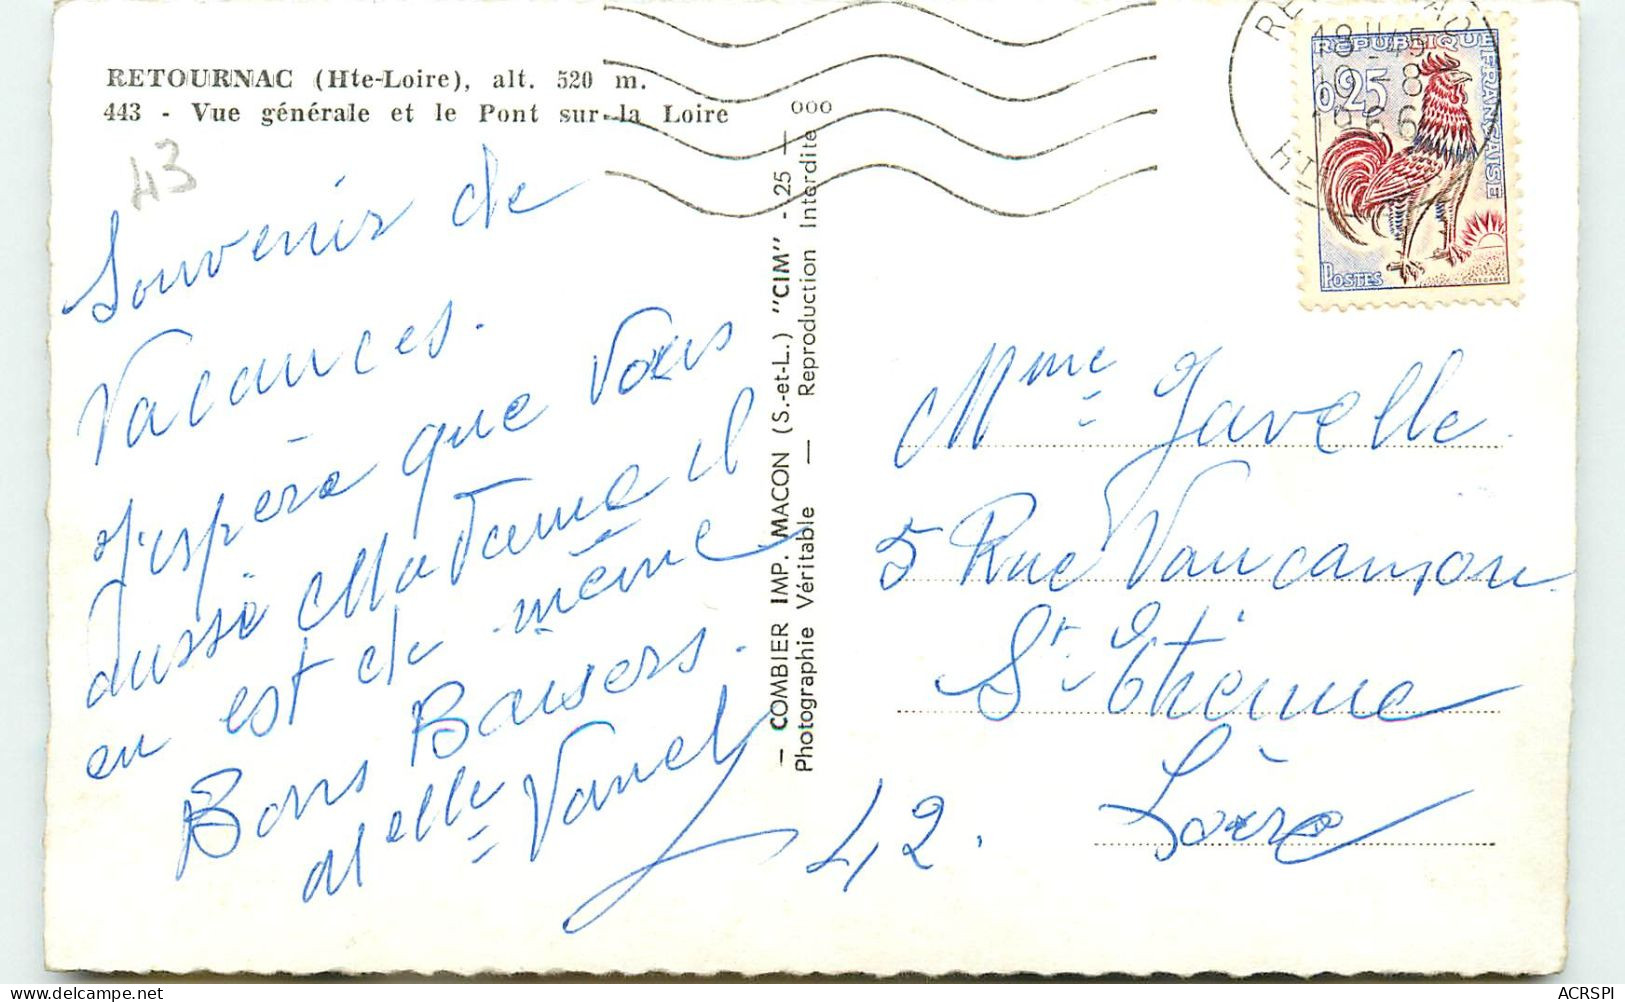 RETOURNAC (Hte-Loire), alt. 520 m.
443 - Vue générale et le Pont sur la Loire
43
Souvenir de
Vacances.
J'espère que Vous
aussi Madame il
en est de même
Bons Baisers.
Melle Vanel
- COMBIER IMP. MACON (S.-et-L.) "CIM" - 25 - ooo
Photographie Véritable — Reproduction Interdite
18 H 45
10 - 8
1966
RÉPUBLIQUE FRANÇAISE
0,25
POSTES
DECARIS
Mme Javelle
5 Rue Vaucanson
St. Etienne
Loire
42.
delcampe.net
ACRSPI